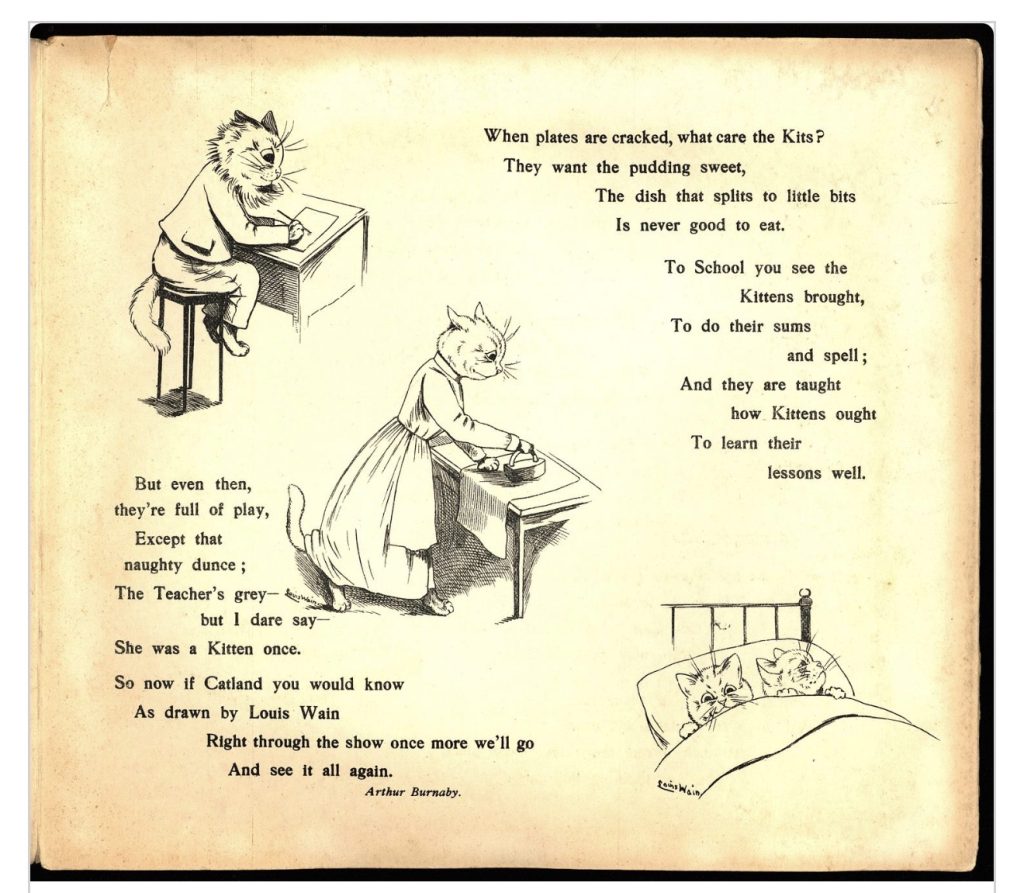 When plates are cracked, what care the Kits?
They want the pudding sweet,
The dish that splits to little bits
Is never good to eat.
To School you see the
Kittens brought,
To do their sums
and spell;
And they are taught
how Kittens ought
To learn their
lessons well.
But even then,
they're full of play,
Except that
naughty dunce;
The Teacher's grey—
but I dare say—
She was a Kitten once.
So now if Catland you would know
As drawn by Louis Wain
Right through the show once more we'll go
And see it all again.
Arthur Burnaby.
Louis Wain
Louis Wain